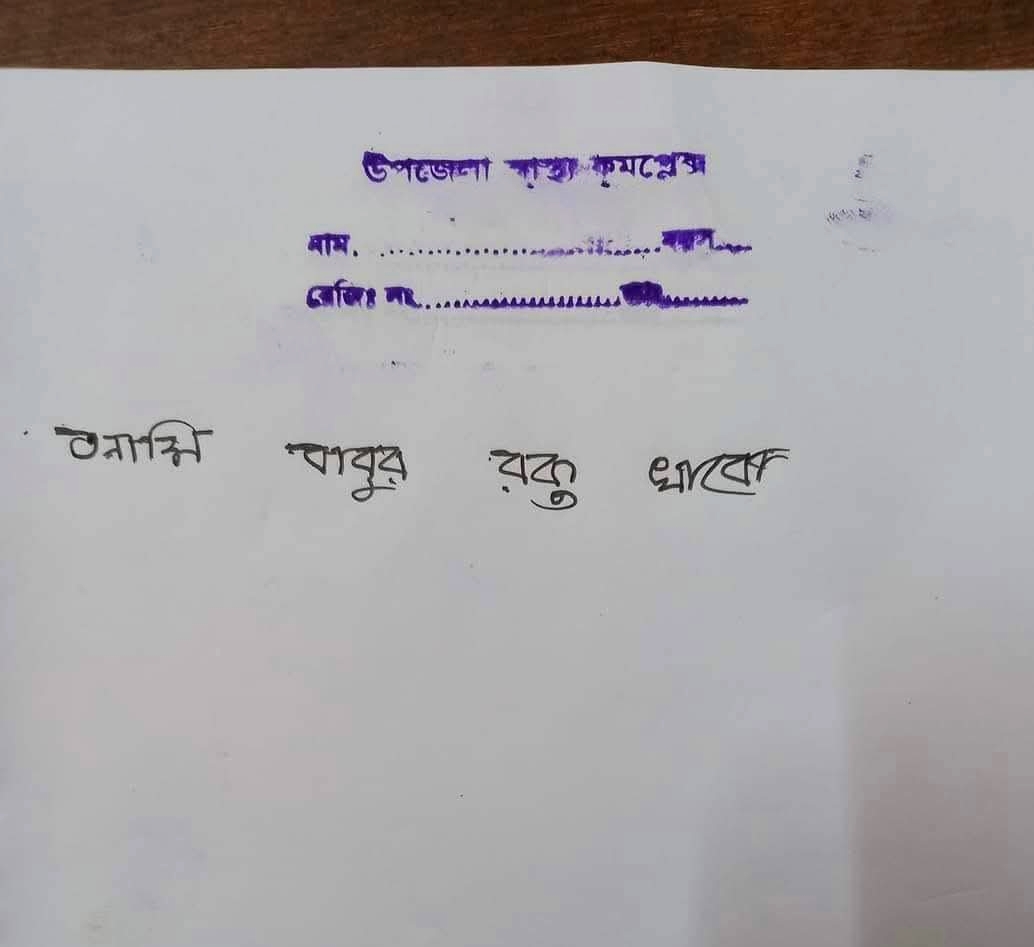 উপজেলা স্বাস্থ্য কমপ্লেক্স
নাম. ........................
রেজিঃ নং........................
বাবুর রক্ত খাবো